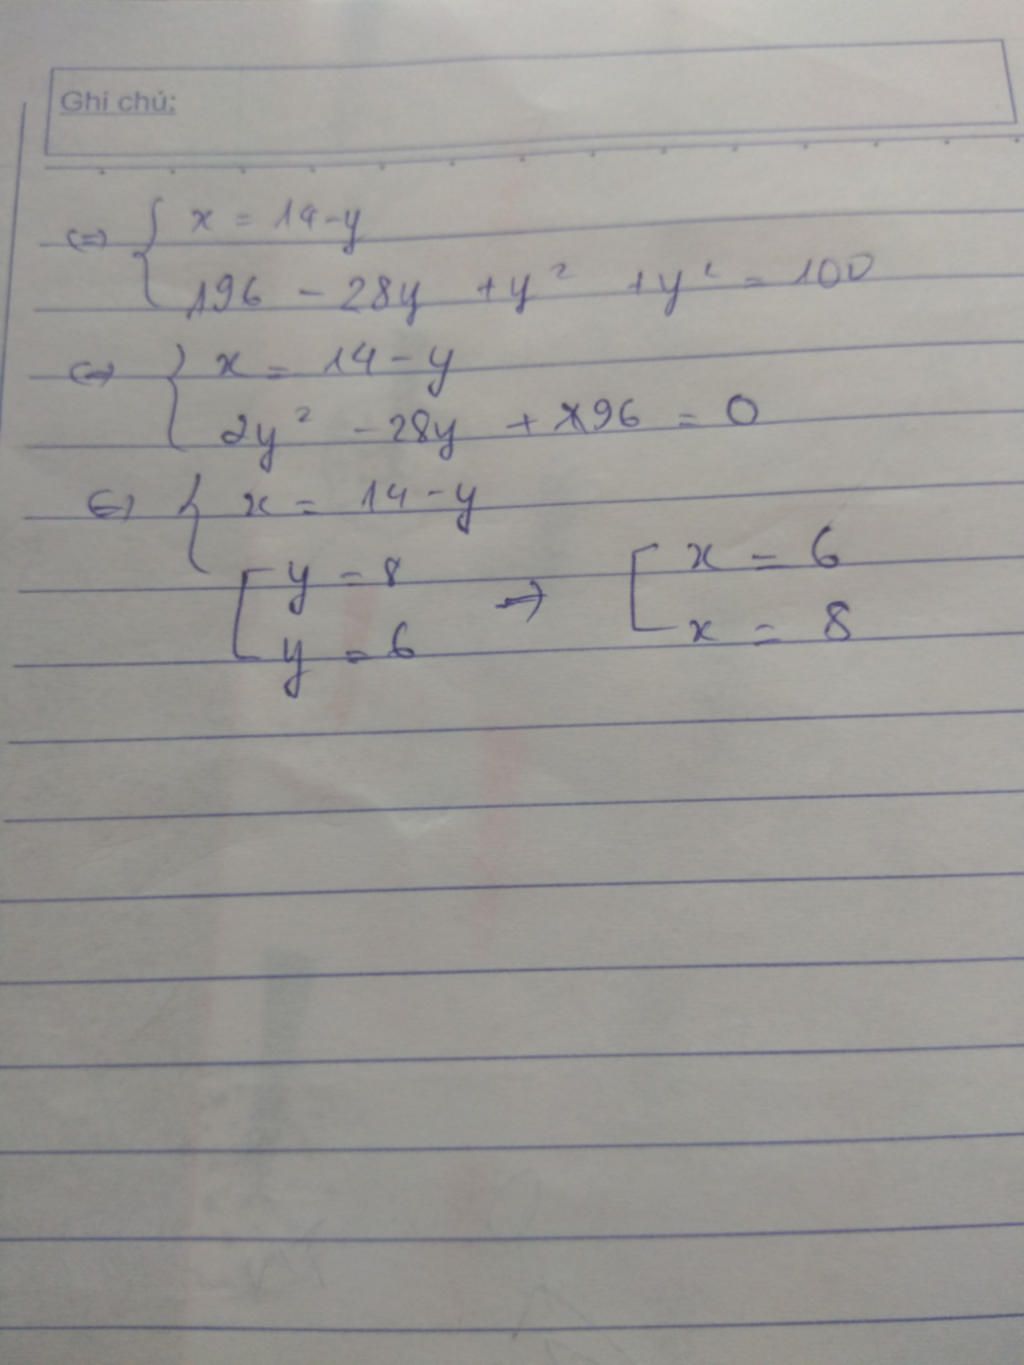 Ghi chú:
<=> { x = 14 - y
196 - 28y + y² + y² = 100
<=> { x = 14 - y
2y² - 28y + 96 = 0
<=> { x = 14 - y
[ y = 8 → [ x = 6
y = 6 x = 8